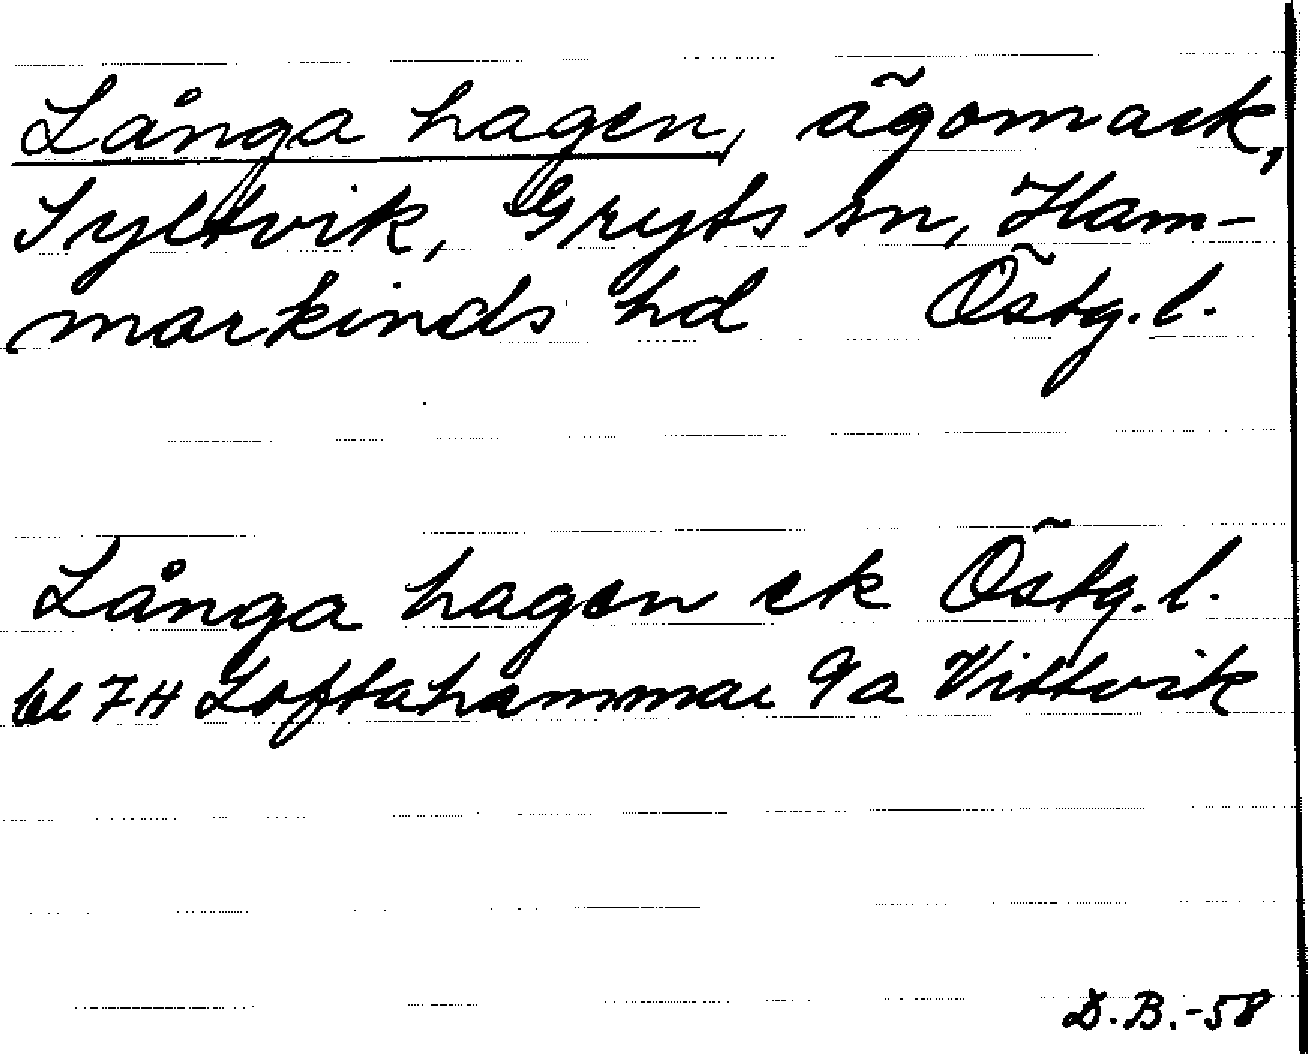 Långa hagen, ägomark,
Syltvik, Gryts sn, Ham-
markinds hd Östg. l.
Långa hagen ek Östg. l.
bl 7H Loftahammar 9a Vittvik
D.B.-58